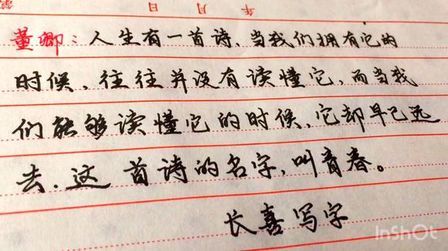 年 月 日
董卿：人生有一首诗，当我们拥有它的
时候，往往并没有读懂它，而当我
们能够读懂它的时候，它却早已远
去，这首诗的名字，叫青春。
长喜写字
InShOt